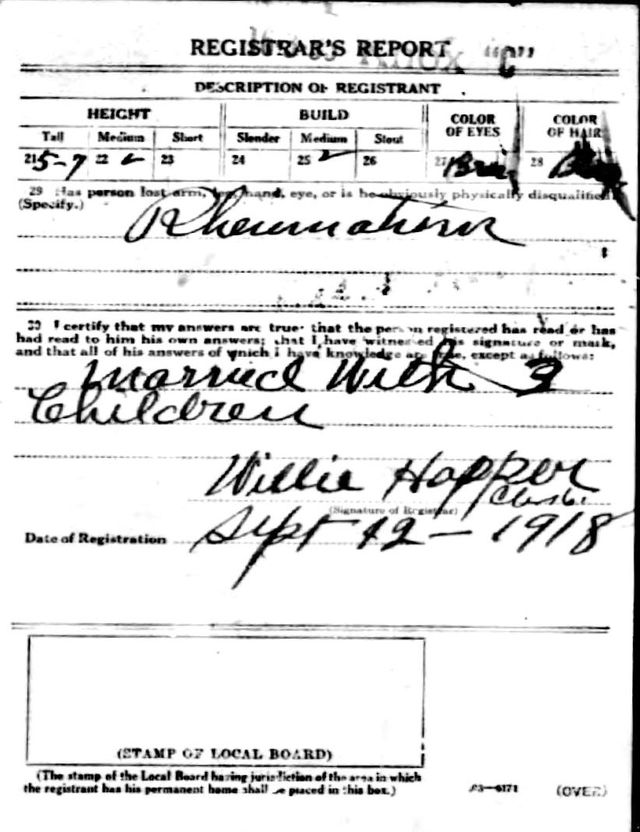 REGISTRAR'S REPORT "C"
DESCRIPTION OF REGISTRANT
HEIGHT BUILD COLOR OF EYES COLOR OF HAIR
Tall Medium Short Slender Medium Stout
21 5-7 22 23 24 25 26 27 28
29 Has person lost arm, leg, hand, eye, or is he obviously physically disqualified?
(Specify.)
Rheumatism
30 I certify that my answers are true; that the person registered has read or has
had read to him his own answers; that I have witnessed his signature or mark,
and that all of his answers of which I have knowledge are true, except as follows:
Married With 3
Children
Willie Hopper
(Signature of Registrar)
Date of Registration Sept 12 - 1918
(STAMP OF LOCAL BOARD)
(The stamp of the Local Board having jurisdiction of the area in which
the registrant has his permanent home shall be placed in this box.)
03—6171 (OVER)